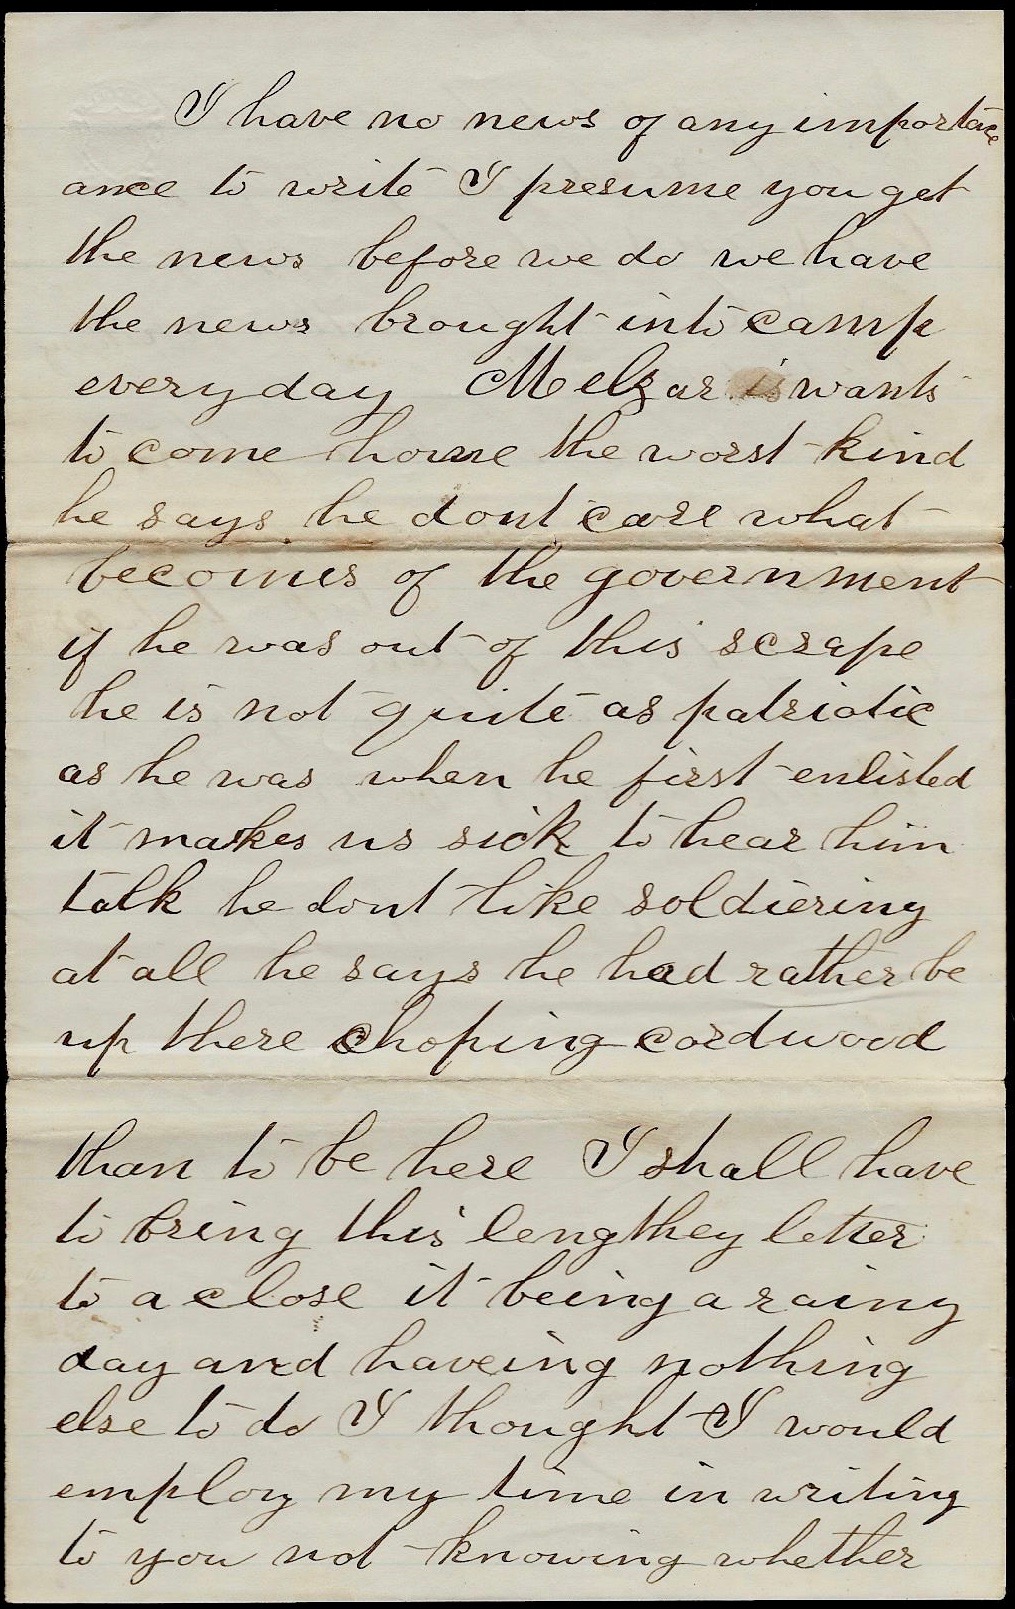 I have no news of any importance
ance to write I presume you get
the news before we do we have
the news brought into camp
every day Melzar is wants
to come home the worst kind
he says he dont care what
becomes of the government
if he was out of this scrape
he is not quite as patriotic
as he was when he first enlisted
it makes us sick to hear him
talk he dont like soldiering
at all he says he had rather be
up there choping cordwood
than to be here I shall have
to bring this lengthey letter
to a close it being a rainy
day and haveing nothing
else to do I thought I would
employ my time in writing
to you not knowing whether